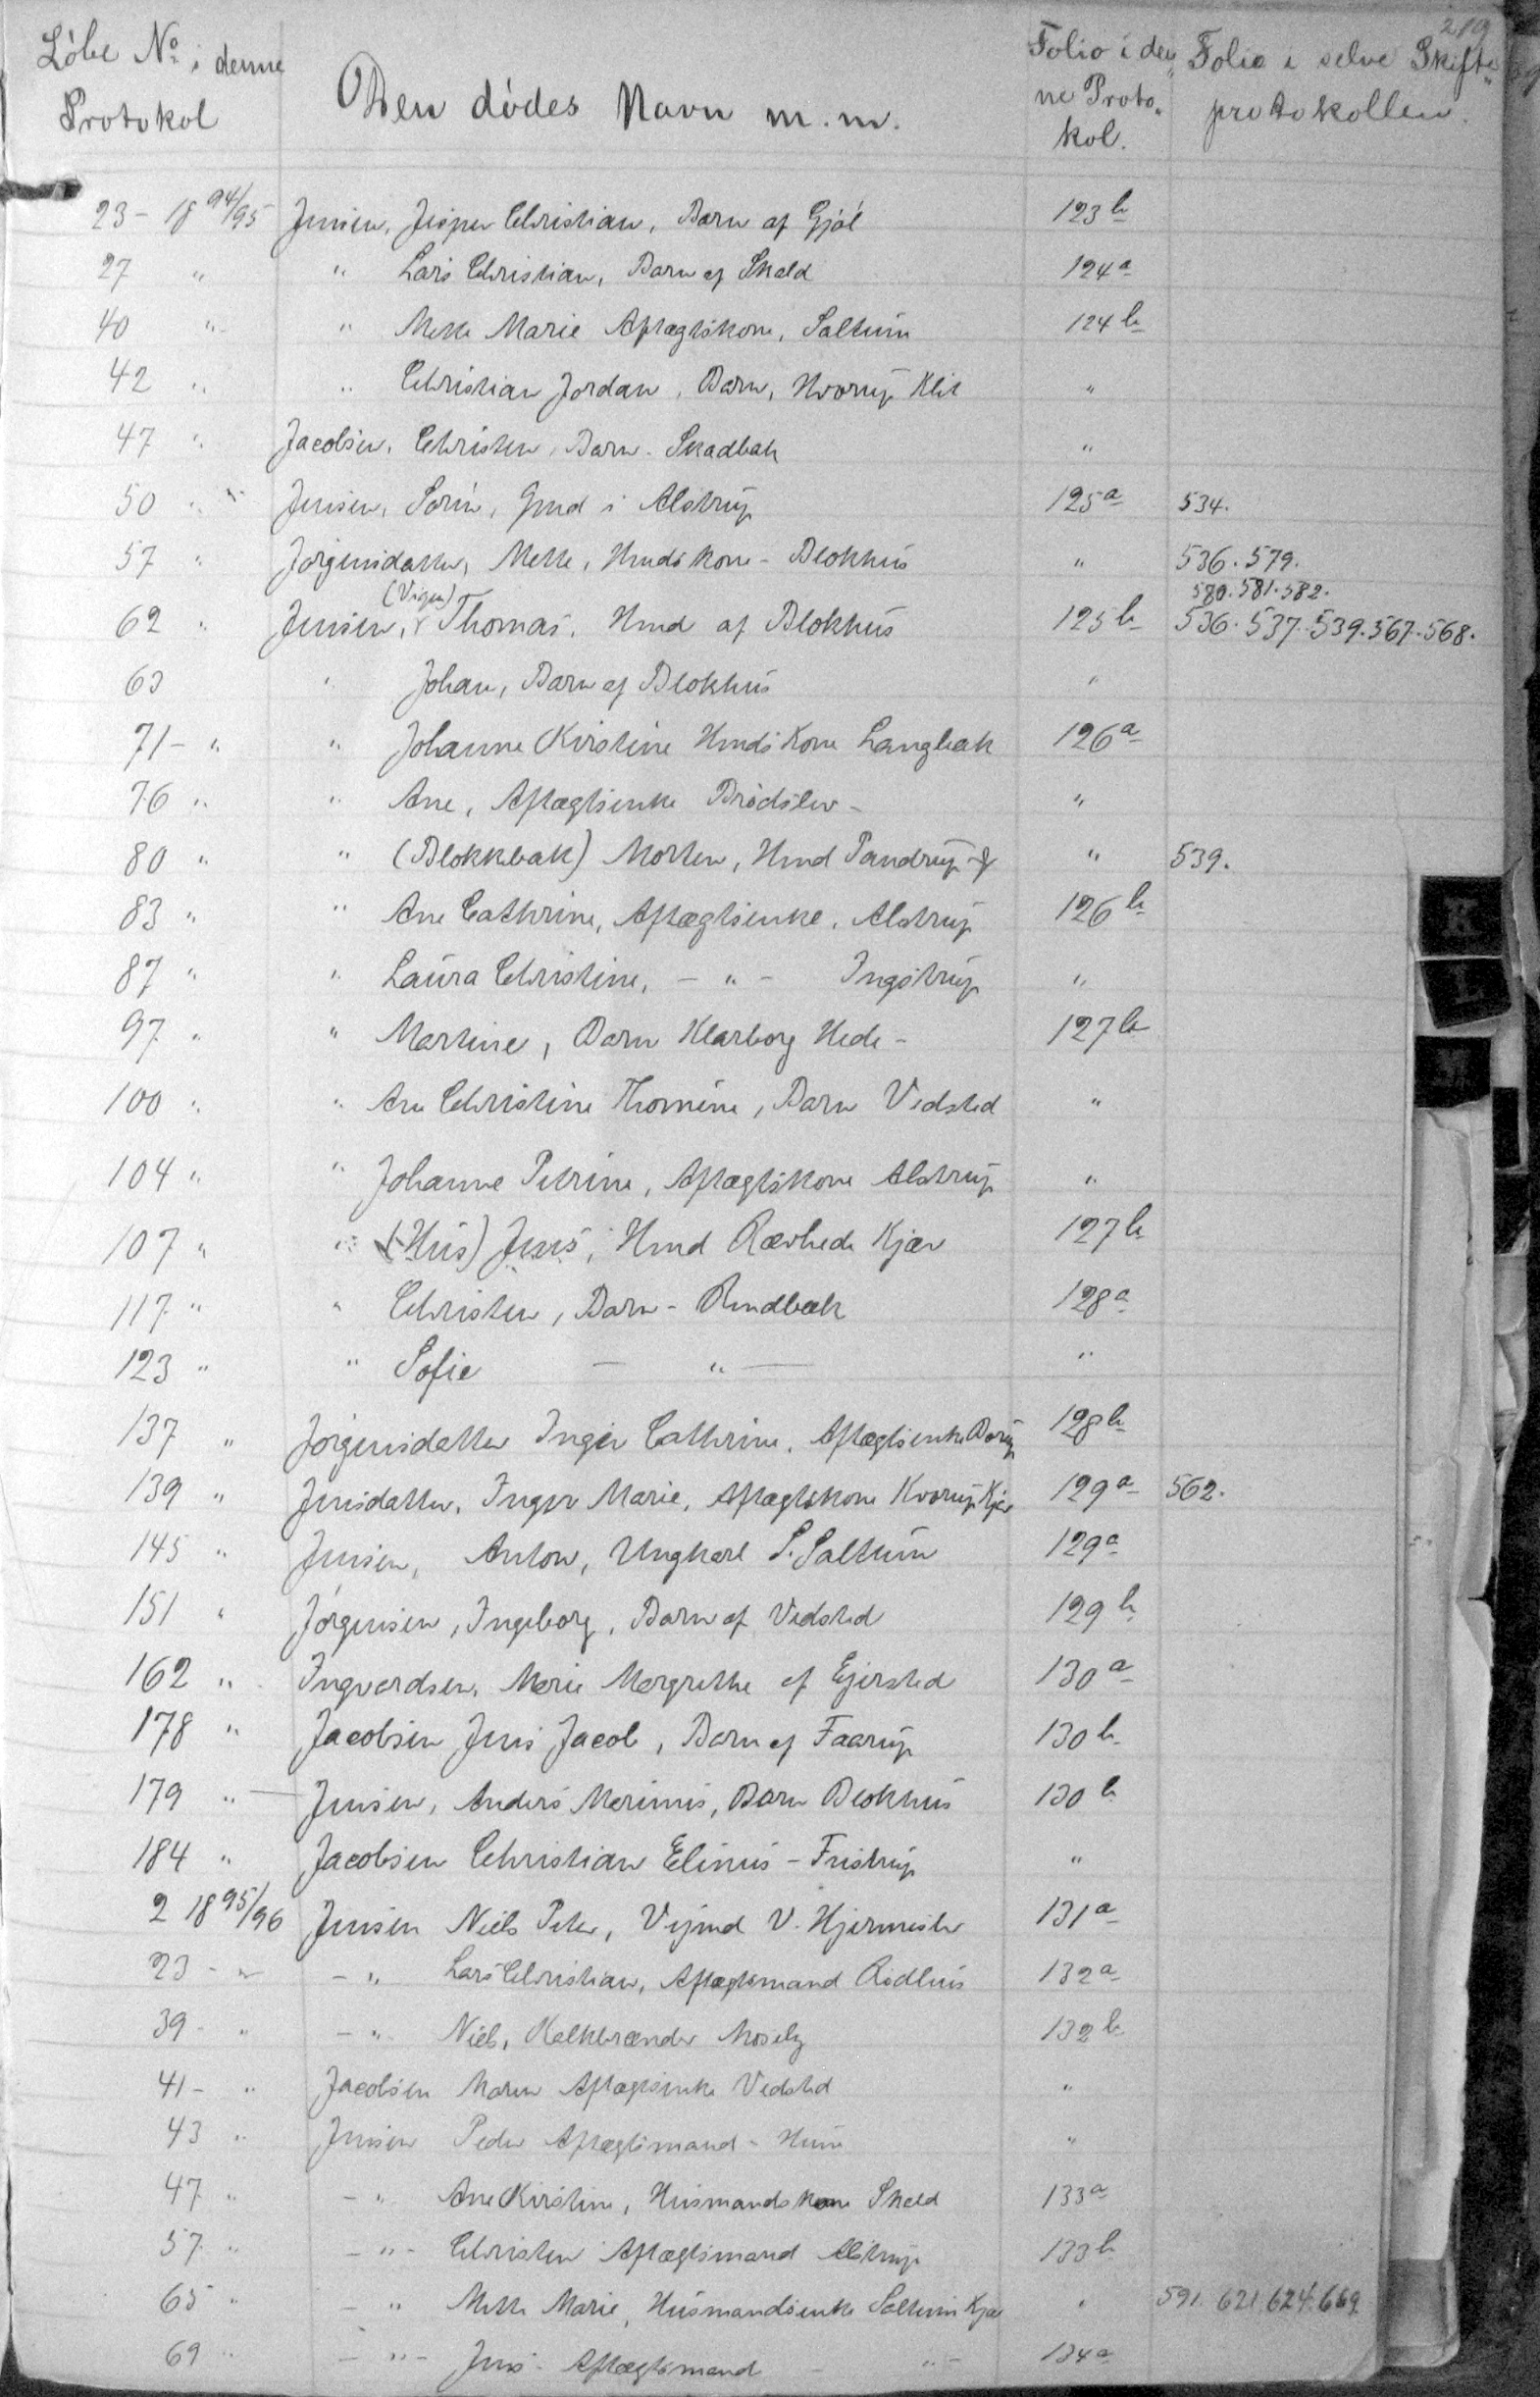 219
Löbe No. i denne Protokol | Den dödes Navn m.m. | Folio i denne Protokol. | Folio i selve Skifteprotokollen.
23 - 18 94/95 Jensen, Jesper Christian, Barn af Gjöl 123 b
27 " " Lars Christian, Barn af Skeld 124 a
40 " " Mette Marie Aftægtskone, Saltum 124 b
42 " " Christian Jordan, Barn, Hvorup Klit "
47 " Jacobsen, Christen, Barn - Skadbak "
50 " Jensen, Sörin, Gmd i Alstrup 125 a 534.
57 " Jörgensdatter, Mette, Hmds kone - Blokhus " 536. 579. 580. 581. 582.
62 " Jensen, (Vigen) Thomas, Hmd af Blokhus 125 b 536. 537. 539. 567. 568.
63 " Johan, Barn af Blokhus "
71 - " " Johanne Kirstine Hmds kone Langbak 126 a
76 " " Ane, Aftægtsenke Brödslev - "
80 " " (Blokkbak) Morten, Hmd Pandrup " 539.
83 " " Ane Cathrine, Aftægtsenke, Alstrup 126 b
87 " " Laura Christine, - " - Ingstrup "
97 " " Martine, Barn Klarborg Hede - 127 b
100 " " Ane Christine Thomine, Barn Vedsted "
104 " " Johanne Petrine, Aftægtskone Alstrup "
107 " " (Hus) Jens, Hmd Rævhede Kjær 127 b
117 " " Christen, Barn - Rendbæk 128 a
123 " " Sofie — " — "
137 " Jörgensdatter Inger Cathrine, Aftægtsenke 128 b
139 " Jensdatter, Inger Marie, Aftægtskone Hvorup Kjær 129 a 562.
145 " Jensen, Anton, Ungkarl S. Saltum 129 a
151 " Jörgensen, Ingeborg, Barn af Vedsted 129 b
162 " Ingvardsen, Marie Margrethe af Ejersted 130 a
178 " Jacobsen Jens Jacob, Barn af Faarup 130 b
179 " — Jensen, Anders Marinus, Barn Blokhus 130 b
184 " Jacobsen Christian Elinus - Fristrup "
2 18 95/96 Jensen Niels Peter, V. Hjermeslev 131 a
23 - " - " Lars Christian, Aftægtsmand Rödhus 132 a
39 - " - " Niels, Kalkbrænder Mosely 132 b
41 - " Jacobsen Maren Aftægtsenke Vedsted "
43 " Jensen Peder Aftægtsmand - Hune "
47 " - " Ane Kirstine, Husmandskone Skeld 133 a
57 " - " - Christen Aftægtsmand Alstrup 133 b
65 " - " Mette Marie, Husmandsenke Saltum Kjær " 591. 621. 624. 669
69 " - " - Jens - Aftægtsmand - " - 134 a
K
L